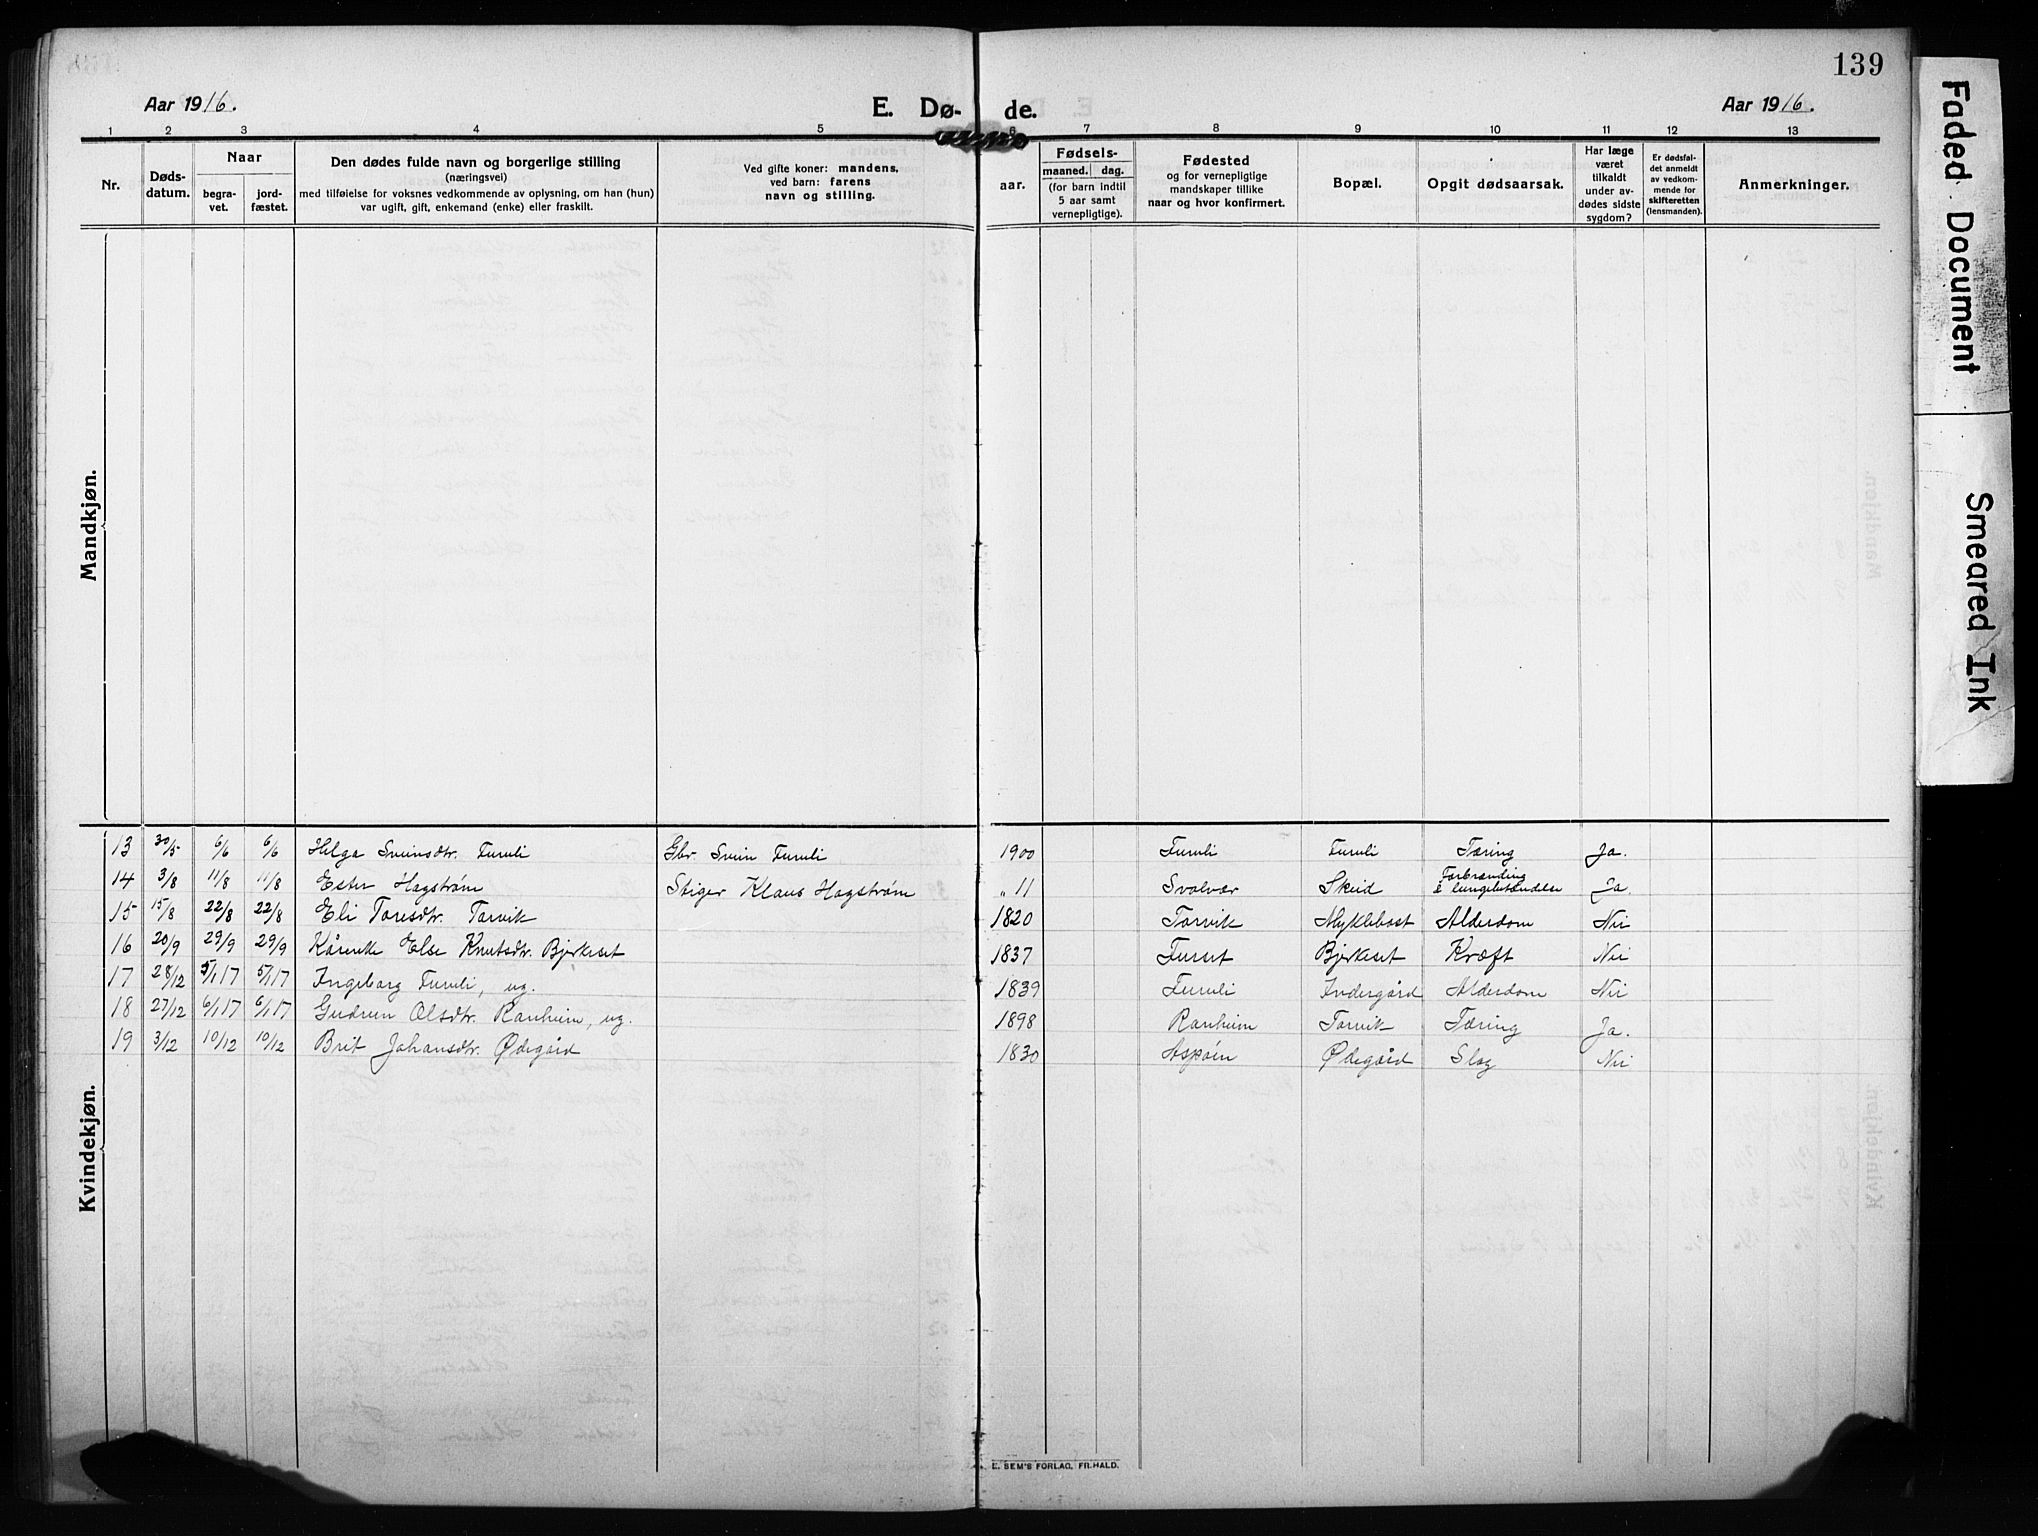 139
Aar 1916.
E. Dø-
de.
Aar 1916.
1 2 3 4 5 6 7 8 9 10 11 12 13
Nr.
Døds-
datum.
Naar
begra-
vet.
jord-
fæstet.
Den dødes fulde navn og borgerlige stilling
(næringsvei)
med tilføielse for voksnes vedkommende av oplysning, om han (hun)
var ugift, gift, enkemand (enke) eller fraskilt.
Ved gifte koner: mandens,
ved barn: farens
navn og stilling.
aar.
Fødsels-
maaned. dag.
(for barn indtil
5 aar samt
vernepligtige).
Fødested
og for vernepligtige
mandskaper tillike
naar og hvor konfirmert.
Bopæl.
Opgit dødsaarsak.
Har læge
været
tilkaldt
under av-
dødes sidste
sygdom?
Er dødsfal-
det anmeldt
av vedkom-
mende for
skifteretten
(lensmanden).
Anmerkninger.
Mandkjøn.
Kvindekjøn.
13 30/5 6/6 6/6 Helga Sveinsdtr. Furuli Gbr. Svein Furuli 1900 Furuli Furuli Tæring Ja.
14 3/8 11/8 11/8 Ester Hagstrøm Stiger Klaus Hagstrøm " 11 Svolvær Skeid Forbrænding & lungebetændelse Ja.
15 15/8 22/8 22/8 Eli Toresdtr. Torvik 1820 Torvik Myklebost Alderdom Nei
16 20/9 29/9 29/9 Kårenke Else Knutsdtr. Bjerkeset 1837 Furset Bjerkeset Kræft Nei
17 28/12 5/1 17 5/1 17 Ingeborg Furuli, ug. 1839 Furuli Indergård Alderdom Nei
18 27/12 6/1 17 6/1 17 Gudrun Olsdtr. Ranheim, ug. 1898 Ranheim Torvik Tæring Ja.
19 3/12 10/12 10/12 Brit Johansdtr. Ødegård 1830 Aspøin Ødegård Slag Nei
E. SEM'S FORLAG, FR.HALD.
Faded Document
Smeared Ink